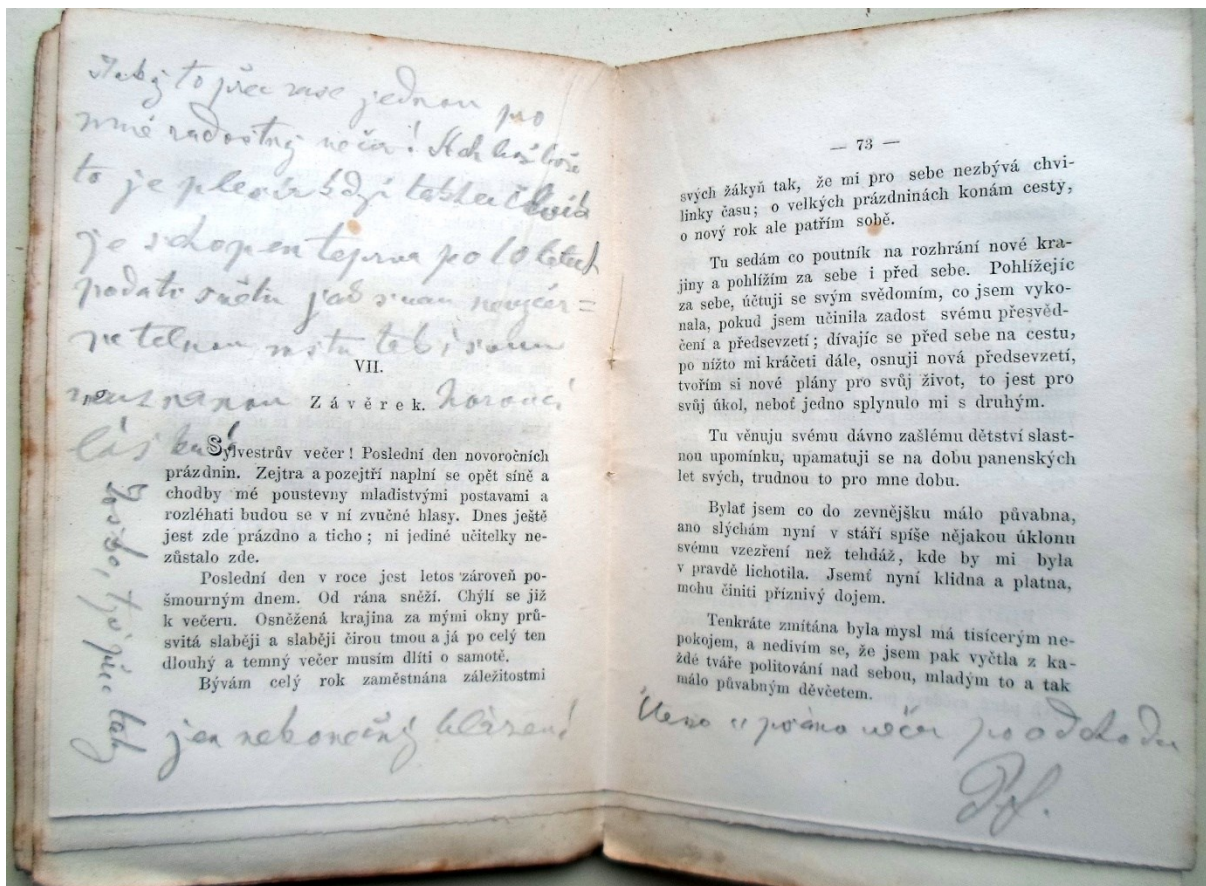 to přec zase jednou pro
mně radostný večer!
to je když člověk
je schopen teprve po 10 letech
podati světu jak
VII.
Závěrek. horoucí
lásku!
Sylvestrův večer! Poslední den novoročních
prázdnin. Zejtra a pozejtří naplní se opět síně a
chodby mé poustevny mladistvými postavami a
rozléhati budou se v ní zvučné hlasy. Dnes ještě
jest zde prázdno a ticho; ni jediné učitelky ne-
zůstalo zde.
Poslední den v roce jest letos zároveň po-
šmourným dnem. Od rána sněží. Chýlí se již
k večeru. Osněžená krajina za mými okny prů-
svitá slaběji a slaběji čirou tmou a já po celý ten
dlouhý a temný večer musím dlíti o samotě.
Bývám celý rok zaměstnána záležitostmi
tys přec tak
jen nekonečný
— 73 —
svých žákyň tak, že mi pro sebe nezbývá chvi-
linky času; o velkých prázdninách konám cesty,
o nový rok ale patřím sobě.
Tu sedám co poutník na rozhrání nové kra-
jiny a pohlížím za sebe i před sebe. Pohlížejíc
za sebe, účtuji se svým svědomím, co jsem vyko-
nala, pokud jsem učinila zadost svému přesvěd-
čení a předsevzetí; dívajíc se před sebe na cestu,
po nížto mi kráčeti dále, osnuji nová předsevzetí,
tvořím si nové plány pro svůj život, to jest pro
svůj úkol, neboť jedno splynulo mi s druhým.
Tu věnuju svému dávno zašlému dětství slast-
nou upomínku, upamatuji se na dobu panenských
let svých, trudnou to pro mne dobu.
Bylať jsem co do zevnějšku málo půvabna,
ano slýchám nyní v stáří spíše nějakou úklonu
svému vzezření než tehdáž, kde by mi byla
v pravdě lichotila. Jsemť nyní klidna a platna,
mohu činiti příznivý dojem.
Tenkráte zmítána byla mysl má tisícerým ne-
pokojem, a nedivím se, že jsem pak vyčtla z ka-
ždé tváře politování nad sebou, mladým to a tak
málo půvabným děvčetem.
večer po odchodu